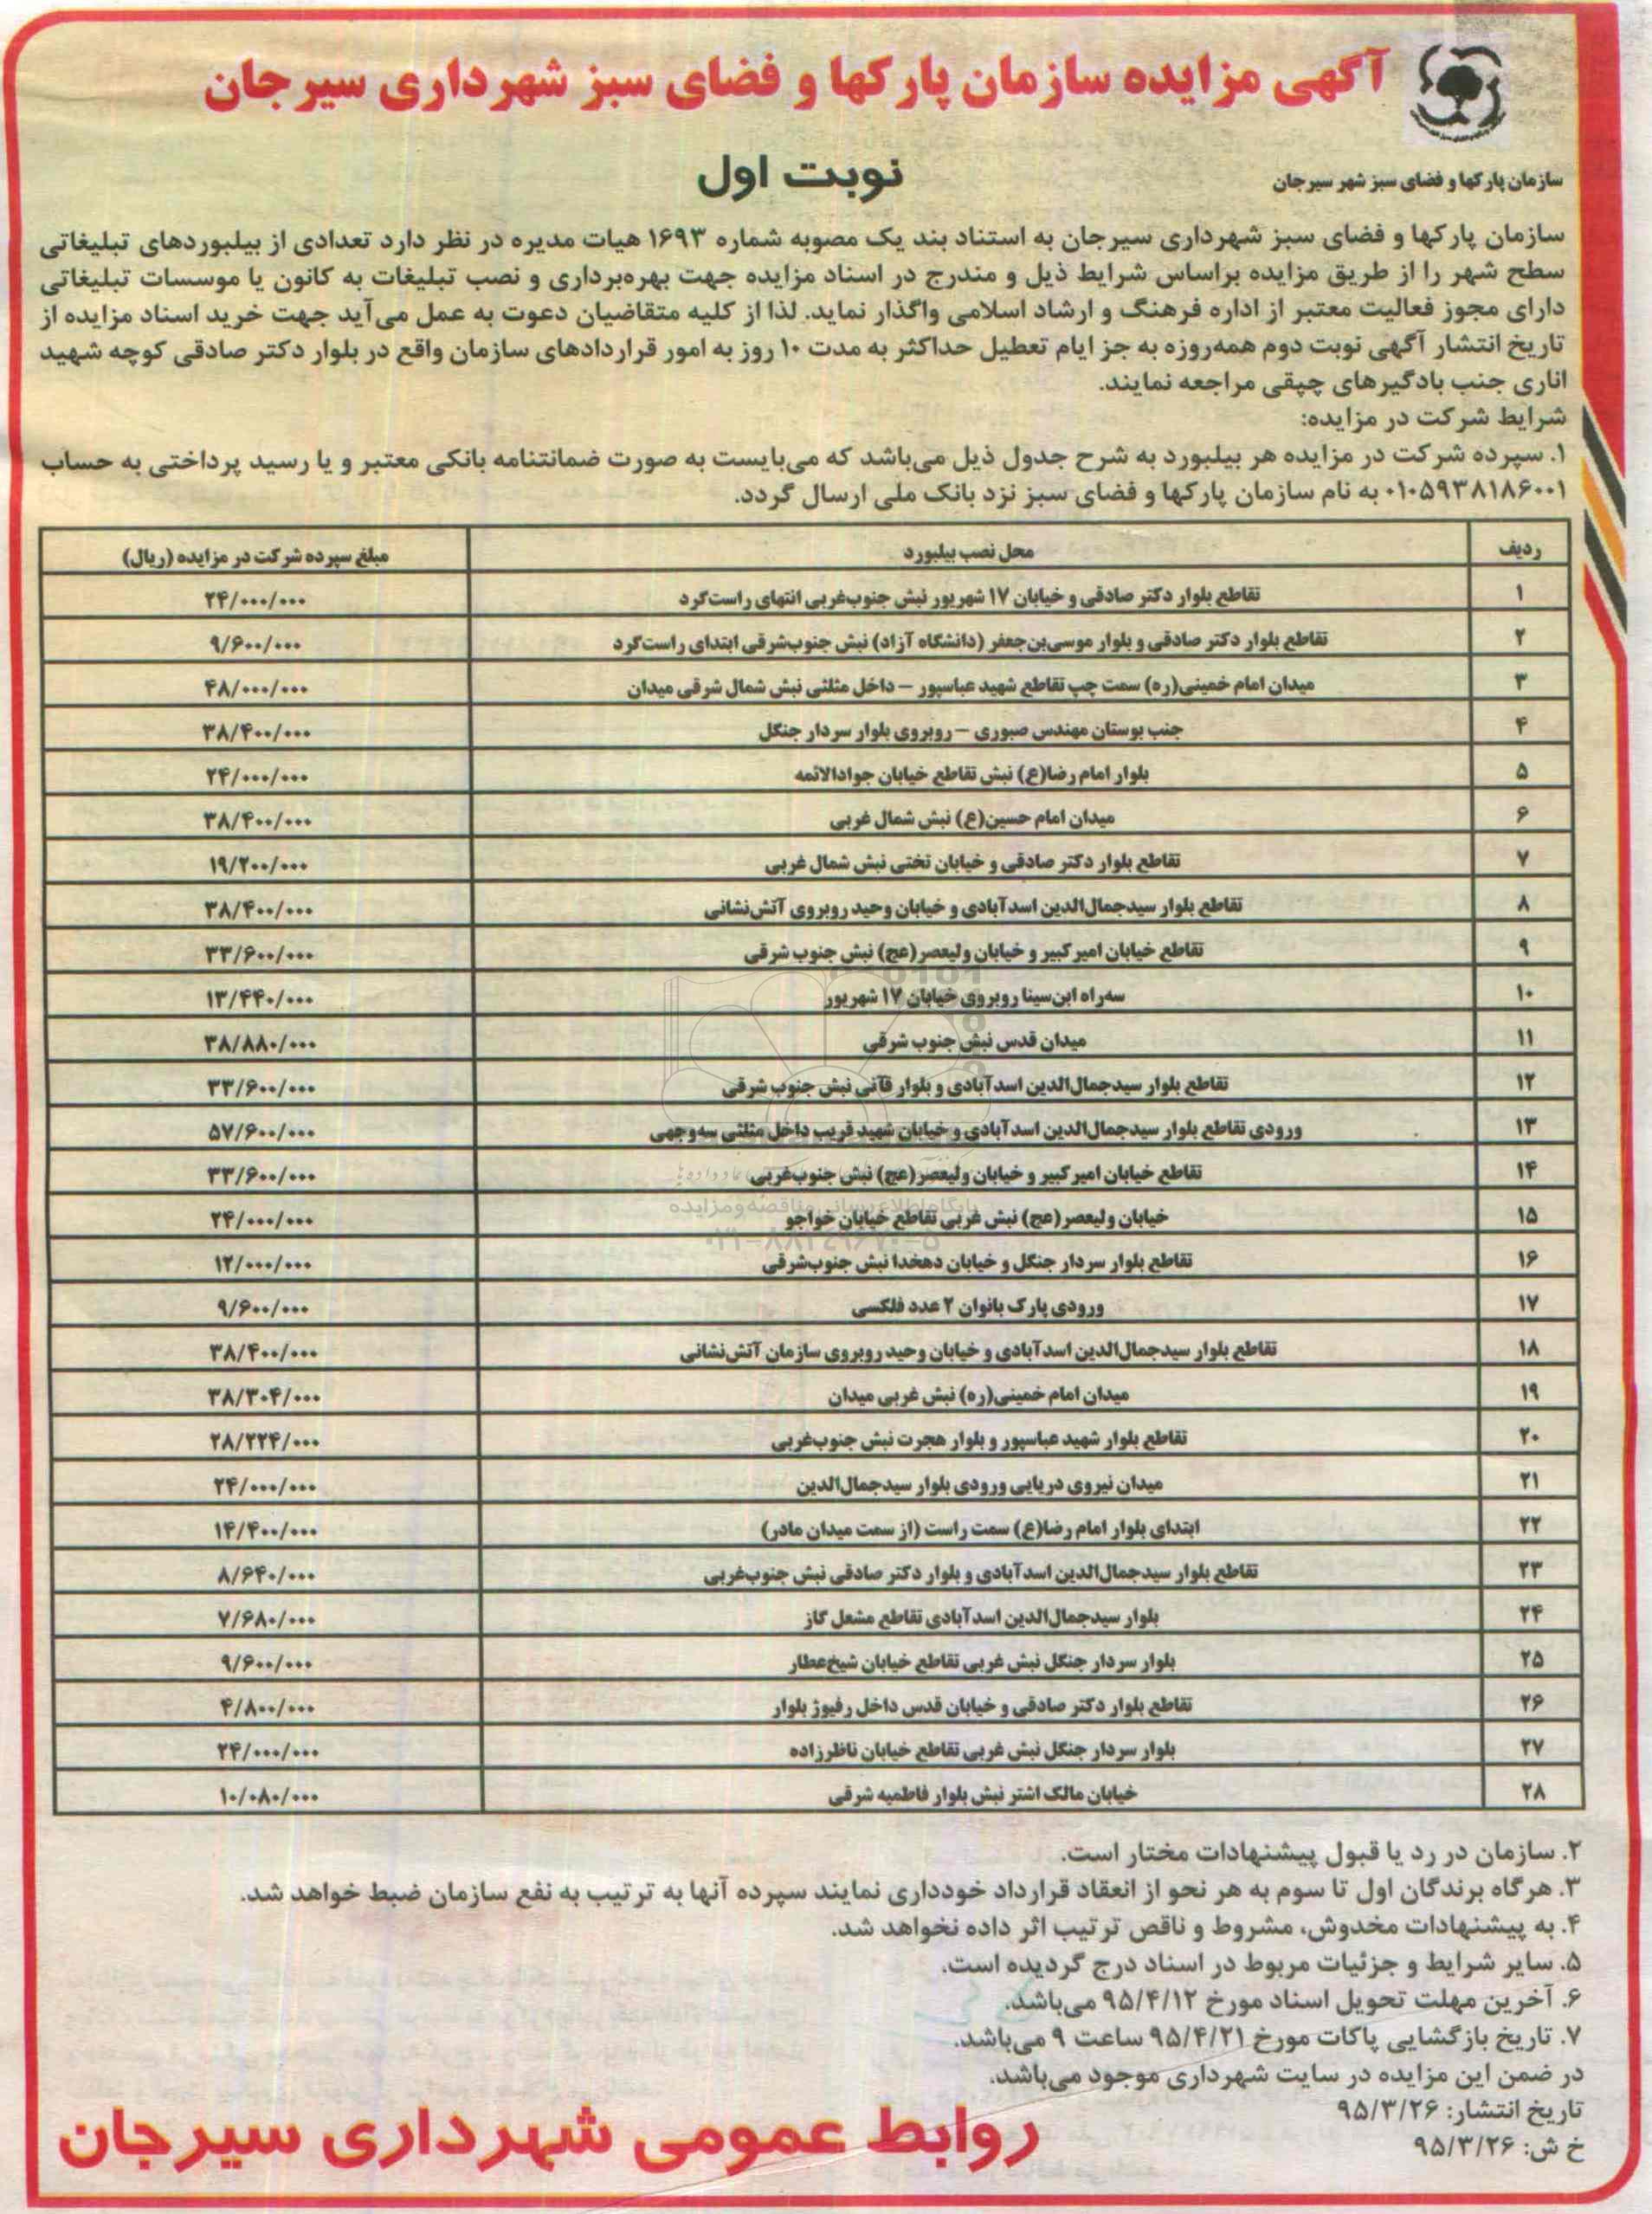 آگهی مزایده سازمان پارکها و فضای سبز شهرداری سیرجان
سازمان پارکها و فضای سبز شهر سیرجان
نوبت اول
سازمان پارکها و فضای سبز شهرداری سیرجان به استناد بند یک مصوبه شماره ۱۶۹۳ هیات مدیره در نظر دارد تعدادی از بیلبوردهای تبلیغاتی
سطح شهر را از طریق مزایده براساس شرایط ذیل و مندرج در اسناد مزایده جهت بهره‌برداری و نصب تبلیغات به کانون یا موسسات تبلیغاتی
دارای مجوز فعالیت معتبر از اداره فرهنگ و ارشاد اسلامی واگذار نماید. لذا از کلیه متقاضیان دعوت به عمل می‌آید جهت خرید اسناد مزایده از
تاریخ انتشار آگهی نوبت دوم همه‌روزه به جز ایام تعطیل حداکثر به مدت ۱۰ روز به امور قراردادهای سازمان واقع در بلوار دکتر صادقی کوچه شهید
اناری جنب بادگیرهای چپقی مراجعه نمایند.
شرایط شرکت در مزایده:
۱. سپرده شرکت در مزایده هر بیلبورد به شرح جدول ذیل می‌باشد که می‌بایست به صورت ضمانتنامه بانکی معتبر و یا رسید پرداختی به حساب
۰۱۰۵۹۳۸۱۸۶۰۰۱ به نام سازمان پارکها و فضای سبز نزد بانک ملی ارسال گردد.
ردیف محل نصب بیلبورد مبلغ سپرده شرکت در مزایده (ریال)
۱ تقاطع بلوار دکتر صادقی و خیابان ۱۷ شهریور نبش جنوب‌غربی انتهای راست‌گرد ۲۴/۰۰۰/۰۰۰
۲ تقاطع بلوار دکتر صادقی و بلوار موسی‌بن‌جعفر (دانشگاه آزاد) نبش جنوب‌شرقی ابتدای راست‌گرد ۹/۶۰۰/۰۰۰
۳ میدان امام خمینی(ره) سمت چپ تقاطع شهید عباسپور – داخل مثلثی نبش شمال شرقی میدان ۴۸/۰۰۰/۰۰۰
۴ جنب بوستان مهندس صبوری – روبروی بلوار سردار جنگل ۳۸/۴۰۰/۰۰۰
۵ بلوار امام رضا(ع) نبش تقاطع خیابان جوادالائمه ۲۴/۰۰۰/۰۰۰
۶ میدان امام حسین(ع) نبش شمال غربی ۳۸/۴۰۰/۰۰۰
۷ تقاطع بلوار دکتر صادقی و خیابان تختی نبش شمال غربی ۱۹/۲۰۰/۰۰۰
۸ تقاطع بلوار سیدجمال‌الدین اسدآبادی و خیابان وحید روبروی آتش‌نشانی ۳۸/۴۰۰/۰۰۰
۹ تقاطع خیابان امیرکبیر و خیابان ولیعصر(عج) نبش جنوب شرقی ۳۳/۶۰۰/۰۰۰
۱۰ سه‌راه ابن‌سینا روبروی خیابان ۱۷ شهریور ۱۳/۴۴۰/۰۰۰
۱۱ میدان قدس نبش جنوب شرقی ۳۸/۸۸۰/۰۰۰
۱۲ تقاطع بلوار سیدجمال‌الدین اسدآبادی و بلوار قاآنی نبش جنوب شرقی ۳۳/۶۰۰/۰۰۰
۱۳ ورودی تقاطع بلوار سیدجمال‌الدین اسدآبادی و خیابان شهید قریب داخل مثلثی سه‌وجهی ۵۷/۶۰۰/۰۰۰
۱۴ تقاطع خیابان امیرکبیر و خیابان ولیعصر(عج) نبش جنوب‌غربی ۳۳/۶۰۰/۰۰۰
۱۵ خیابان ولیعصر(عج) نبش غربی تقاطع خیابان خواجو ۲۴/۰۰۰/۰۰۰
۱۶ تقاطع بلوار سردار جنگل و خیابان دهخدا نبش جنوب‌شرقی ۱۲/۰۰۰/۰۰۰
۱۷ ورودی پارک بانوان ۲ عدد فلکسی ۹/۶۰۰/۰۰۰
۱۸ تقاطع بلوار سیدجمال‌الدین اسدآبادی و خیابان وحید روبروی سازمان آتش‌نشانی ۳۸/۴۰۰/۰۰۰
۱۹ میدان امام خمینی(ره) نبش غربی میدان ۳۸/۳۰۴/۰۰۰
۲۰ تقاطع بلوار شهید عباسپور و بلوار هجرت نبش جنوب‌غربی ۲۸/۲۲۴/۰۰۰
۲۱ میدان نیروی دریایی ورودی بلوار سیدجمال‌الدین ۲۴/۰۰۰/۰۰۰
۲۲ ابتدای بلوار امام رضا(ع) سمت راست (از سمت میدان مادر) ۱۴/۴۰۰/۰۰۰
۲۳ تقاطع بلوار سیدجمال‌الدین اسدآبادی و بلوار دکتر صادقی نبش جنوب‌غربی ۸/۶۴۰/۰۰۰
۲۴ بلوار سیدجمال‌الدین اسدآبادی تقاطع مشعل گاز ۷/۶۸۰/۰۰۰
۲۵ بلوار سردار جنگل نبش غربی تقاطع خیابان شیخ‌عطار ۹/۶۰۰/۰۰۰
۲۶ تقاطع بلوار دکتر صادقی و خیابان قدس داخل رفیوژ بلوار ۴/۸۰۰/۰۰۰
۲۷ بلوار سردار جنگل نبش غربی تقاطع خیابان ناظرزاده ۲۴/۰۰۰/۰۰۰
۲۸ خیابان مالک اشتر نبش بلوار فاطمیه شرقی ۱۰/۰۸۰/۰۰۰
پایگاه اطلاع رسانی مناقصه و مزایده
۰۲۱-۸۸۳۴۹۶۷۰-۵
۲. سازمان در رد یا قبول پیشنهادات مختار است.
۳. هرگاه برندگان اول تا سوم به هر نحو از انعقاد قرارداد خودداری نمایند سپرده آنها به ترتیب به نفع سازمان ضبط خواهد شد.
۴. به پیشنهادات مخدوش، مشروط و ناقص ترتیب اثر داده نخواهد شد.
۵. سایر شرایط و جزئیات مربوط در اسناد درج گردیده است.
۶. آخرین مهلت تحویل اسناد مورخ ۹۵/۴/۱۲ می‌باشد.
۷. تاریخ بازگشایی پاکات مورخ ۹۵/۴/۲۱ ساعت ۹ می‌باشد.
در ضمن این مزایده در سایت شهرداری موجود می‌باشد.
تاریخ انتشار: ۹۵/۳/۲۶
خ ش: ۹۵/۳/۲۶
روابط عمومی شهرداری سیرجان